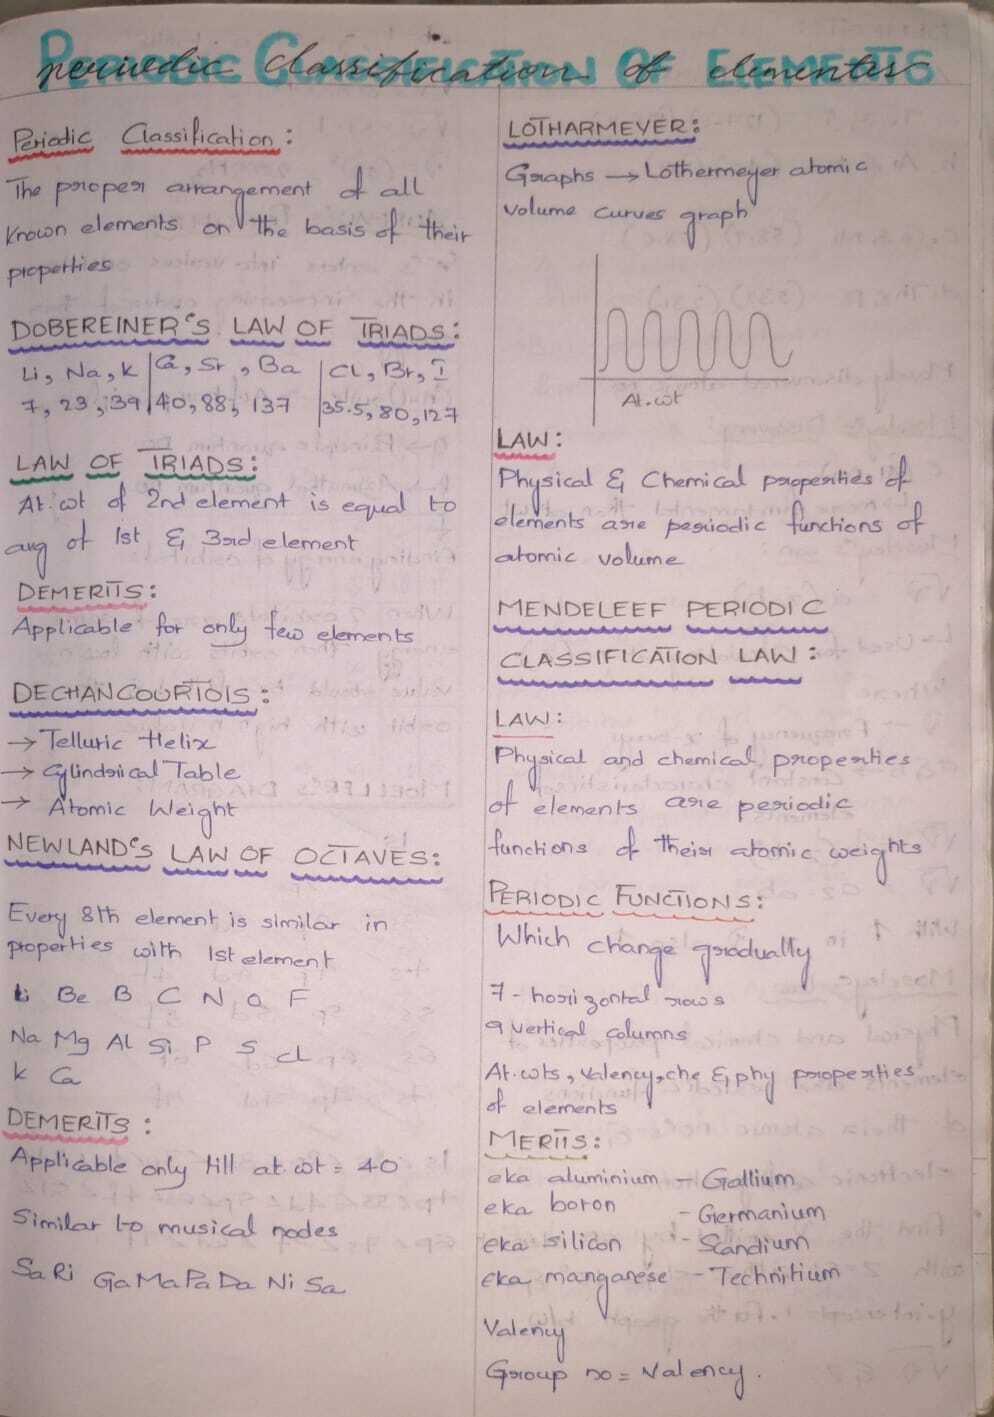 Periodic Classification Of Elements
periodic classification of elements
Periodic Classification:
The proper arrangement of all
known elements on the basis of their
properties
DOBEREINER'S LAW OF TRIADS:
Li, Na, K | Ca, Sr, Ba | CL, Br, I
7, 23, 39 | 40, 88, 137 | 35.5, 80, 127
LAW OF TRIADS:
At. wt of 2nd element is equal to
avg of 1st & 3rd element
DEMERITS:
Applicable for only few elements
DECHANCOURTOIS:
→ Telluric Helix
→ Cylindrical Table
→ Atomic Weight
NEWLAND'S LAW OF OCTAVES:
Every 8th element is similar in
properties with 1st element
Li Be B C N O F
Na Mg Al Si P S cl
K Ca
DEMERITS:
Applicable only till at. wt = 40
Similar to musical nodes
Sa Ri Ga Ma Pa Da Ni Sa
LOTHARMEYER:
Graphs → Lothermeyer atomic
volume curves graph
At. wt
LAW:
Physical & Chemical properties of
elements are periodic functions of
atomic volume
MENDELEEF PERIODIC
CLASSIFICATION LAW:
LAW:
Physical and chemical properties
of elements are periodic
functions of their atomic weights
PERIODIC FUNCTIONS:
Which change gradually
7 - horizontal rows
9 vertical columns
At. wts, valency, che & phy properties
of elements
MERITS:
eka aluminium - Gallium
eka boron - Germanium
eka silicon - Scandium
eka manganese - Technitium
Valency
Group no = Valency.